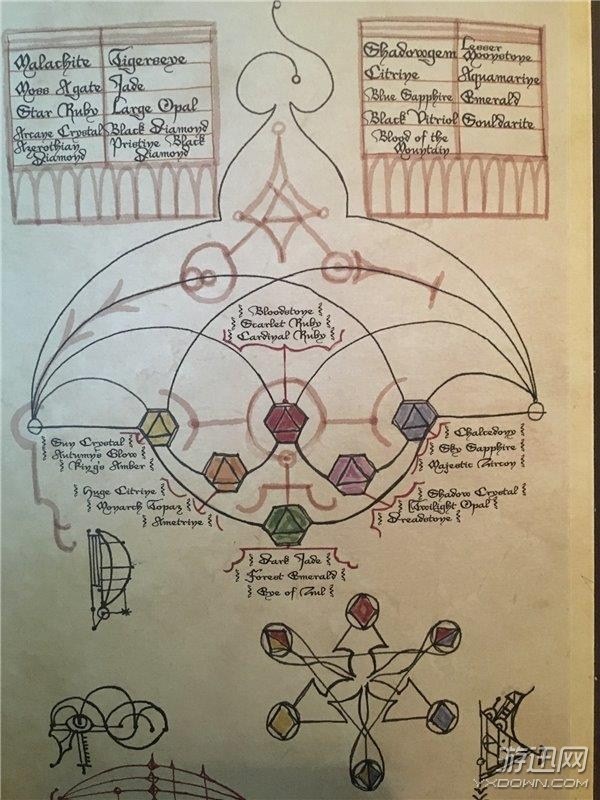 Malachite Tigerseye
Moss Agate Jade
Star Ruby Large Opal
Arcane Crystal Black Diamond
Azerothian Diamond Pristine Black Diamond
Shadowgem Lesser Moonstone
Citrine Aquamarine
Blue Sapphire Emerald
Black Vitriol Souldarite
Blood of the Mountain
Bloodstone
Scarlet Ruby
Cardinal Ruby
Sun Crystal
Autumn's Glow
King's Amber
Chalcedony
Sky Sapphire
Majestic Zircon
Huge Citrine
Monarch Topaz
Ametrine
Shadow Crystal
Twilight Opal
Dreadstone
Dark Jade
Forest Emerald
Eye of Zul
游迅网
YXDOWN.COM